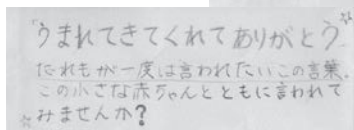 "うまれてきてくれてありがとう"
だれもが一度は言われたいこの言葉。
この小さな赤ちゃんとともに言われて
みませんか?